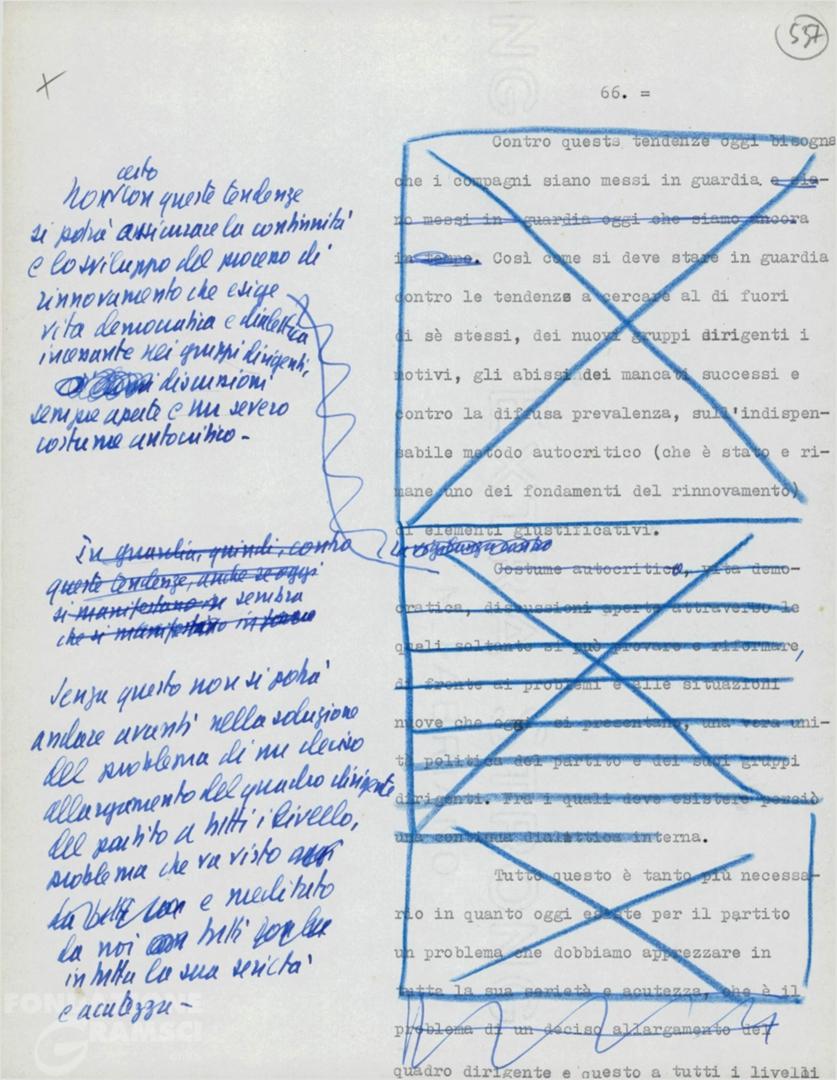 537
66. =
Contro queste tendenze oggi bisogna
che i compagni siano messi in guardia e sia-
no messi in guardia oggi che siamo ancora
in tempo. Così come si deve stare in guardia
contro le tendenze a cercare al di fuori
di sè stessi, dei nuovi gruppi dirigenti i
motivi, gli abissi dei mancati successi e
contro la diffusa prevalenza, sull'indispen-
sabile metodo autocritico (che è stato e ri-
mane uno dei fondamenti del rinnovamento)
di elementi giustificativi.
Costume autocritico, vita demo-
cratica, discussioni aperte attraverso le
quali soltanto si può provare e riformare,
di fronte ai problemi e alle situazioni
nuove che oggi si presentano, una vera uni-
tà politica del partito e dei suoi gruppi
dirigenti. Fra i quali deve esistere perciò
una continua dialettica interna.
Tutto questo è tanto più necessa-
rio in quanto oggi esiste per il partito
un problema che dobbiamo apprezzare in
tutta la sua serietà e acutezza, che è il
problema di un deciso allargamento del
quadro dirigente e questo a tutti i livelli
certo
Non con queste tendenze
si potrà assicurare la continuità
e lo sviluppo del processo di
rinnovamento che esige
vita democratica e dialettica
incessante nei gruppi dirigenti,
discussioni
sempre aperte e un severo
costume autocritico -
In guardia, quindi, contro
queste tendenze, anche se oggi
si manifestano sembra
che si manifestano in forme
Senza questo non si potrà
andare avanti nella soluzione
del problema di un deciso
allargamento del quadro dirigente
del partito a tutti i livelli,
problema che va visto
e meditato
da noi tutti
in tutta la sua serietà
e acutezza -
FONDAZIONE
GRAMSCI